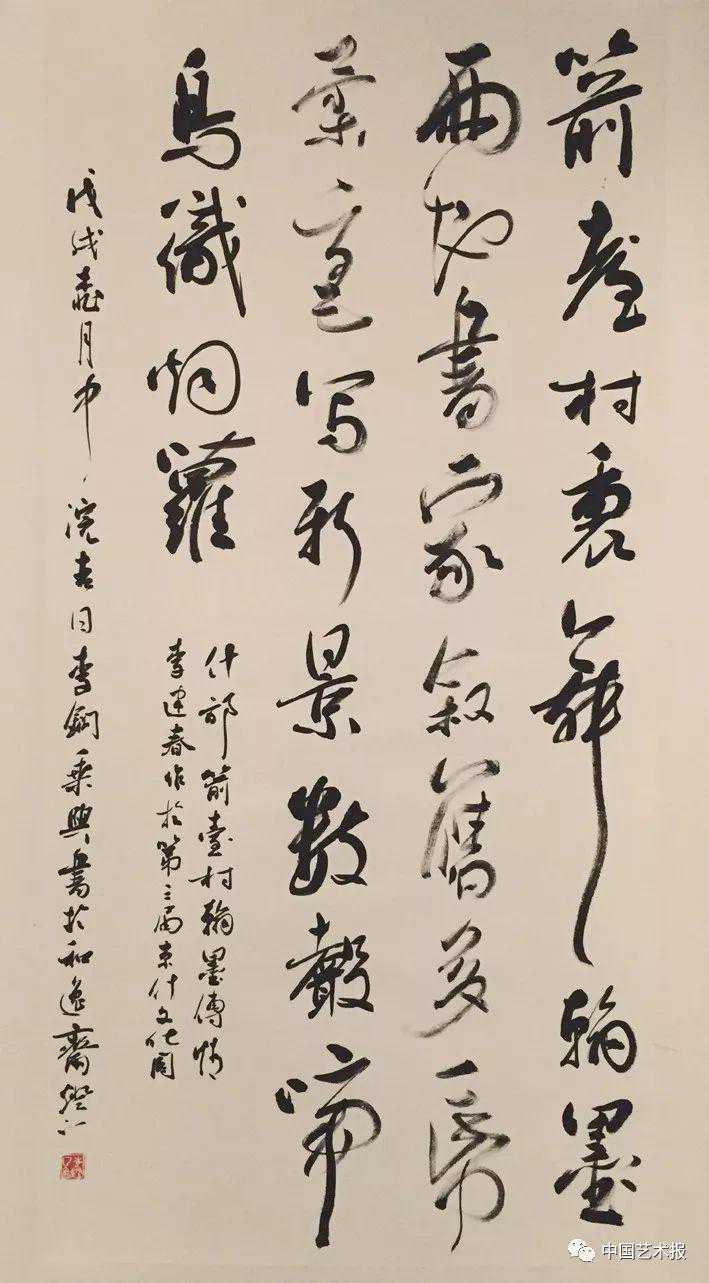 箭台村裏舞翰墨
两地书家叙旧多一幕
叶童写新景数声啼
鸟织烟萝
什邡箭台村翰墨传情
李建春作于第三届京什文化周
戊戌桃月中浣吉日李钢乘兴书于和逸斋灯下
中国艺术报